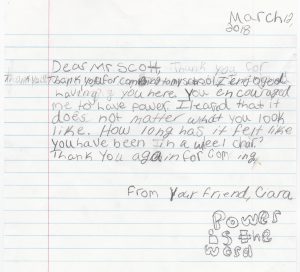 March 12,
2018
Dear Mr Scott, Thank you for
Thank you for coming to my school I enjoyed
having you here. You encouraged
me to have power I learnd that it
does not matter what you look
like. How long has it felt like
you have been in a weel chair?
Thank you again for coming
From your friend, Ciara
Power
is the
word